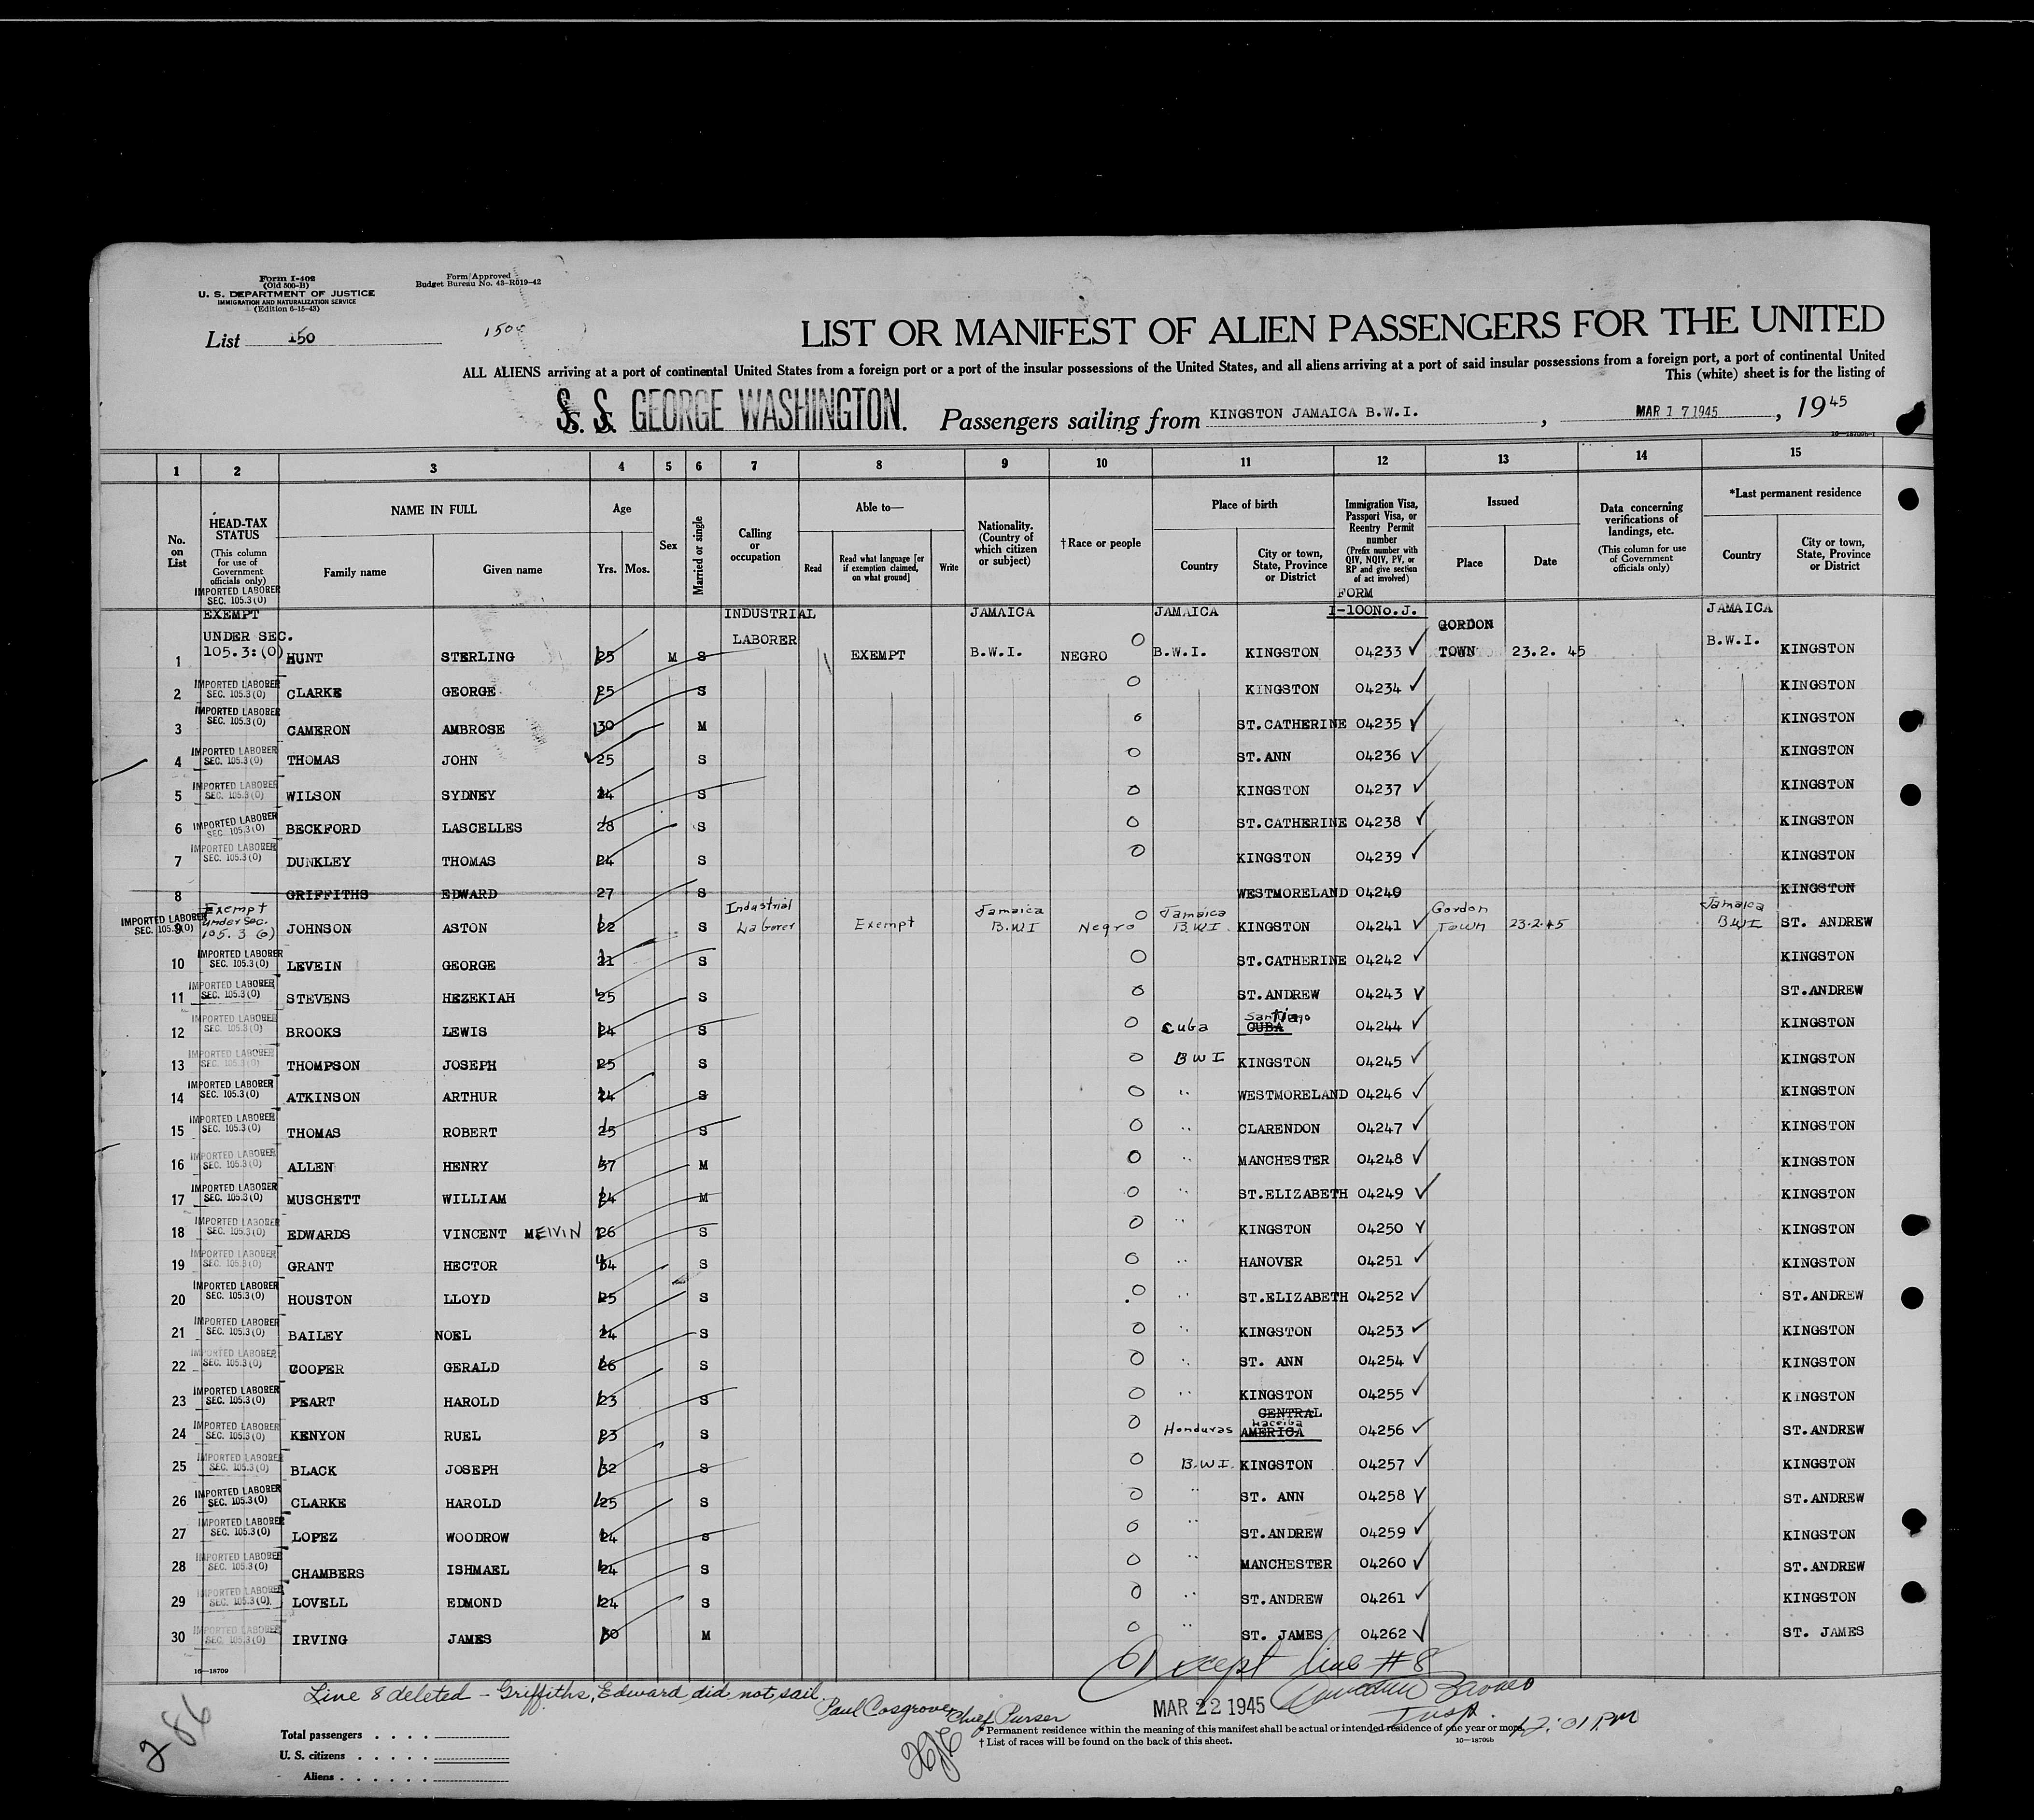 Form I-402
(Old 500-B)
U. S. DEPARTMENT OF JUSTICE
IMMIGRATION AND NATURALIZATION SERVICE
(Edition 6-15-43)
Form Approved
Budget Bureau No. 43-R019-42
List 150
150
LIST OR MANIFEST OF ALIEN PASSENGERS FOR THE UNITED
ALL ALIENS arriving at a port of continental United States from a foreign port or a port of the insular possessions of the United States, and all aliens arriving at a port of said insular possessions from a foreign port, a port of continental United
This (white) sheet is for the listing of
S. S. GEORGE WASHINGTON. Passengers sailing from KINGSTON JAMAICA B.W.I. , MAR 17 1945 , 1945
16—18709b-1
1 2 3 4 5 6 7 8 9 10 11 12 13 14 15
No. on List
HEAD-TAX STATUS (This column for use of Government officials only)
NAME IN FULL Family name Given name
Age Yrs. Mos.
Sex
Married or single
Calling or occupation
Able to— Read Read what language [or if exemption claimed, on what ground] Write
Nationality. (Country of which citizen or subject)
†Race or people
Place of birth Country City or town, State, Province or District
Immigration Visa, Passport Visa, or Reentry Permit number (Prefix number with QIV, NQIV, PV, or RP and give section of act involved)
Issued Place Date
Data concerning verifications of landings, etc. (This column for use of Government officials only)
*Last permanent residence Country City or town, State, Province or District
IMPORTED LABORER SEC. 105.3(0)
FORM
EXEMPT INDUSTRIAL JAMAICA JAMAICA I-100No.J. GORDON JAMAICA
UNDER SEC. LABORER B.W.I.
1 105.3:(0) HUNT STERLING 25 M S EXEMPT B.W.I. NEGRO B.W.I. KINGSTON 04233 TOWN 23.2. 45 KINGSTON
2 IMPORTED LABORER SEC. 105.3(0) CLARKE GEORGE 25 S KINGSTON 04234 KINGSTON
3 IMPORTED LABORER SEC. 105.3(0) CAMERON AMBROSE 30 M ST.CATHERINE 04235 KINGSTON
4 IMPORTED LABORER SEC. 105.3(0) THOMAS JOHN 25 S ST.ANN 04236 KINGSTON
5 IMPORTED LABORER SEC. 105.3(0) WILSON SYDNEY 24 S KINGSTON 04237 KINGSTON
6 IMPORTED LABORER SEC. 105.3(0) BECKFORD LASCELLES 28 S ST.CATHERINE 04238 KINGSTON
7 IMPORTED LABORER SEC. 105.3(0) DUNKLEY THOMAS 24 S KINGSTON 04239 KINGSTON
8 GRIFFITHS EDWARD 27 S WESTMORELAND 04240 KINGSTON
9 IMPORTED LABORER SEC. 105.3(0) Exempt under Sec. 105.3 (o) JOHNSON ASTON 22 S Industrial Laborer Exempt Jamaica B.W.I Negro Jamaica B.W.I. KINGSTON 04241 Gordon Town 23.2.45 Jamaica B.W.I ST. ANDREW
10 IMPORTED LABORER SEC. 105.3(0) LEVEIN GEORGE 21 S ST.CATHERINE 04242 KINGSTON
11 IMPORTED LABORER SEC. 105.3(0) STEVENS HEZEKIAH 25 S ST.ANDREW 04243 ST.ANDREW
12 IMPORTED LABORER SEC. 105.3(0) BROOKS LEWIS 24 S Cuba Santiago CUBA 04244 KINGSTON
13 IMPORTED LABORER SEC. 105.3(0) THOMPSON JOSEPH 25 S B W I KINGSTON 04245 KINGSTON
14 IMPORTED LABORER SEC. 105.3(0) ATKINSON ARTHUR 24 S " WESTMORELAND 04246 KINGSTON
15 IMPORTED LABORER SEC. 105.3(0) THOMAS ROBERT 25 S " CLARENDON 04247 KINGSTON
16 IMPORTED LABORER SEC. 105.3(0) ALLEN HENRY 37 M MANCHESTER 04248 KINGSTON
17 IMPORTED LABORER SEC. 105.3(0) MUSCHETT WILLIAM 24 M " ST.ELIZABETH 04249 KINGSTON
18 IMPORTED LABORER SEC. 105.3(0) EDWARDS VINCENT MElVIN 26 S " KINGSTON 04250 KINGSTON
19 IMPORTED LABORER SEC. 105.3(0) GRANT HECTOR 34 S " HANOVER 04251 KINGSTON
20 IMPORTED LABORER SEC. 105.3(0) HOUSTON LLOYD 25 S " ST.ELIZABETH 04252 ST.ANDREW
21 IMPORTED LABORER SEC. 105.3(0) BAILEY NOEL 24 S " KINGSTON 04253 KINGSTON
22 IMPORTED LABORER SEC. 105.3(0) COOPER GERALD 26 S " ST. ANN 04254 KINGSTON
23 IMPORTED LABORER SEC. 105.3(0) PEART HAROLD 23 S " KINGSTON 04255 KINGSTON
24 IMPORTED LABORER SEC. 105.3(0) KENYON RUEL 23 S Honduras CENTRAL AMERICA Laceiba 04256 ST.ANDREW
25 IMPORTED LABORER SEC. 105.3(0) BLACK JOSEPH 32 S B.W.I. KINGSTON 04257 KINGSTON
26 IMPORTED LABORER SEC. 105.3(0) CLARKE HAROLD 25 S " ST. ANN 04258 ST.ANDREW
27 IMPORTED LABORER SEC. 105.3(0) LOPEZ WOODROW 24 S " ST.ANDREW 04259 KINGSTON
28 IMPORTED LABORER SEC. 105.3(0) CHAMBERS ISHMAEL 24 S " MANCHESTER 04260 ST.ANDREW
29 IMPORTED LABORER SEC. 105.3(0) LOVELL EDMOND 24 S " ST.ANDREW 04261 KINGSTON
30 IMPORTED LABORER SEC. 105.3(0) IRVING JAMES 30 M " ST. JAMES 04262 ST. JAMES
16—18709
Except line #8
Line 8 deleted — Griffiths, Edward did not sail.
Paul Cosgrove, Chief Purser
MAR 22 1945
Insp. 12:01 PM
286
Total passengers
U. S. citizens
Aliens
* Permanent residence within the meaning of this manifest shall be actual or intended residence of one year or more.
† List of races will be found on the back of this sheet.
16—18709b